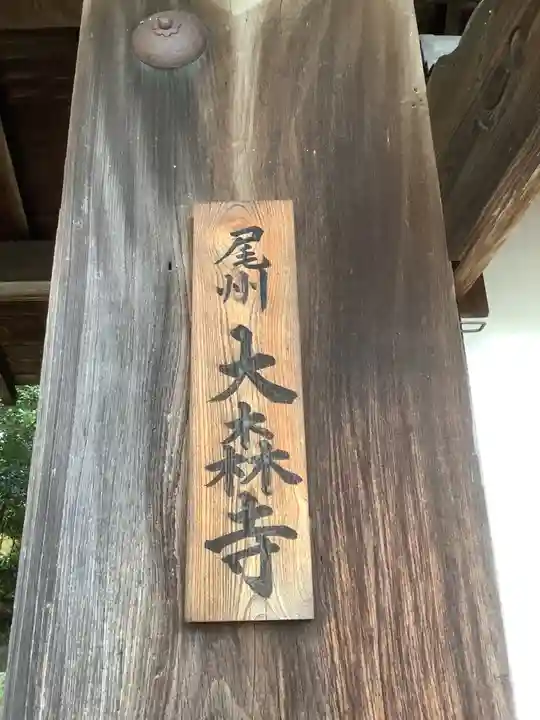 尾州 大森寺